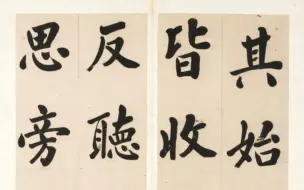 其始
皆收
反聽
思旁